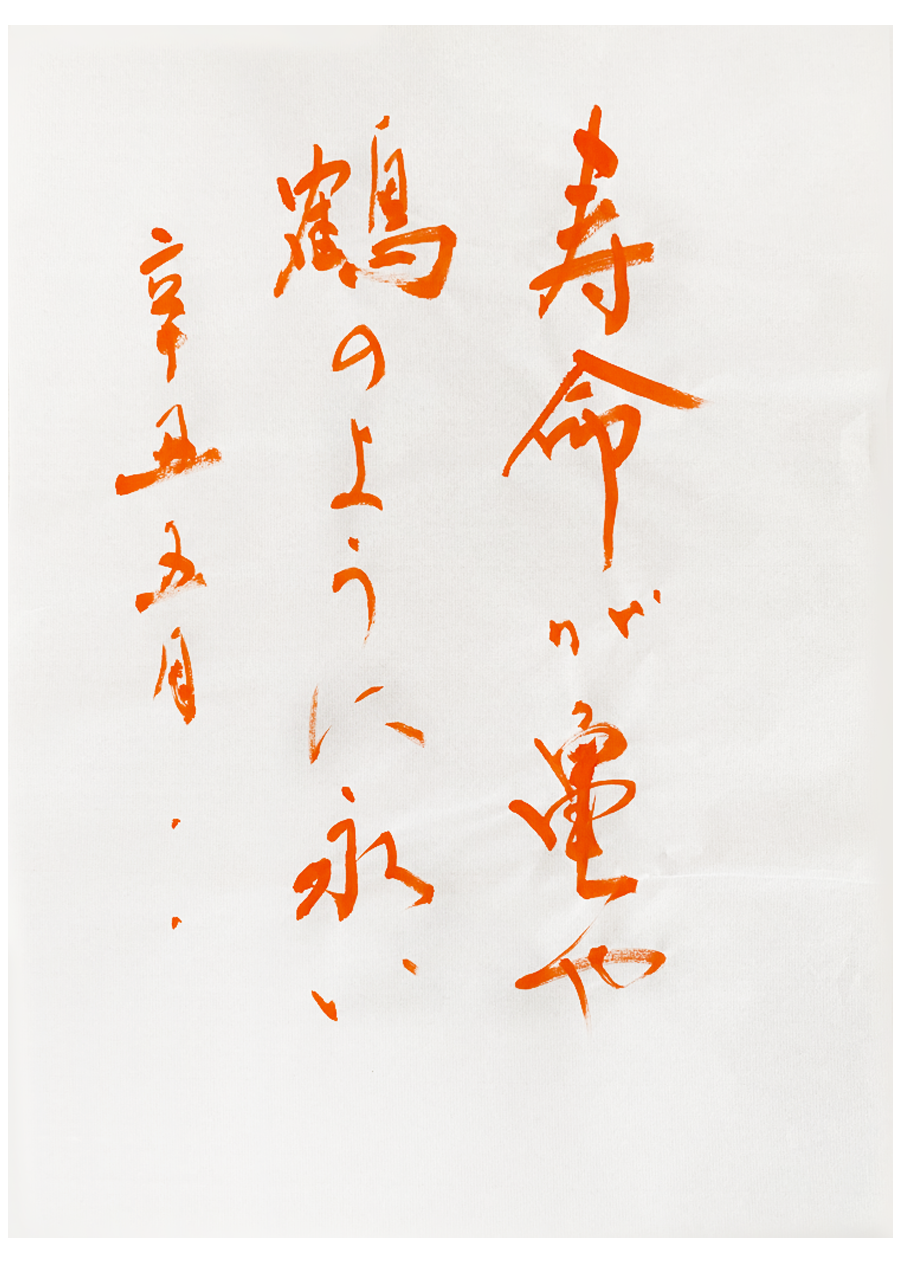 寿命が亀や
鶴のように永い
辛丑五月